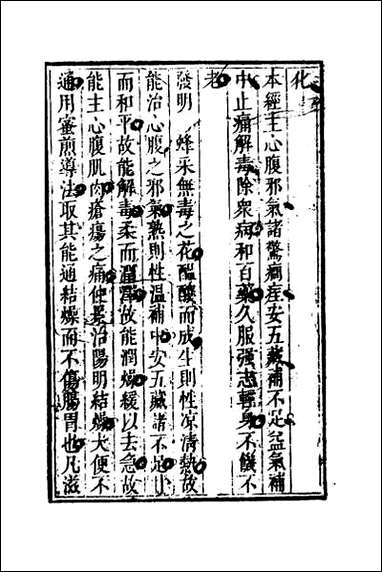 化
本經主心腹邪氣諸驚癇痓安五藏補不足益氣補
中止痛解毒除衆病和百藥久服强志輕身不饑不
老
發明 蜂采無毒之花醞釀而成生則性凉清熱故
能治心腹之邪氣熟則性温補中安五藏諸不足也
而和平故能解毒柔而潤澤故能潤燥緩以去急故
能主心腹肌肉瘡瘍之痛仲景治陽明結燥大便不
通用蜜煎導法取其能通結燥而不傷腸胃也凡滋